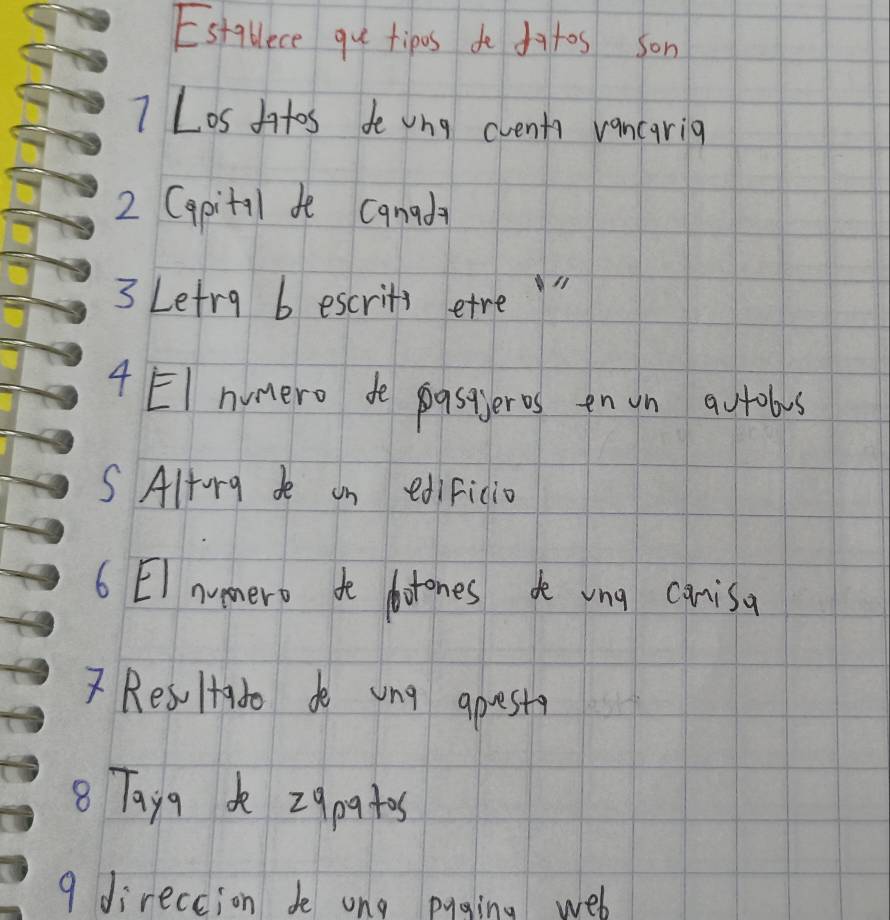 Establece que tipos de datos son
1 Los datos de una cuenta vancaria
2 Capital de Canada
3 Letra b escrita etre ""
4 El numero de pasajeros en un autobus
5 Altura de un edificio
6 El numero de botones de una camisa
7 Resultado de una apuesta
8 Taya de zapatos
9 direccion de una pagina web